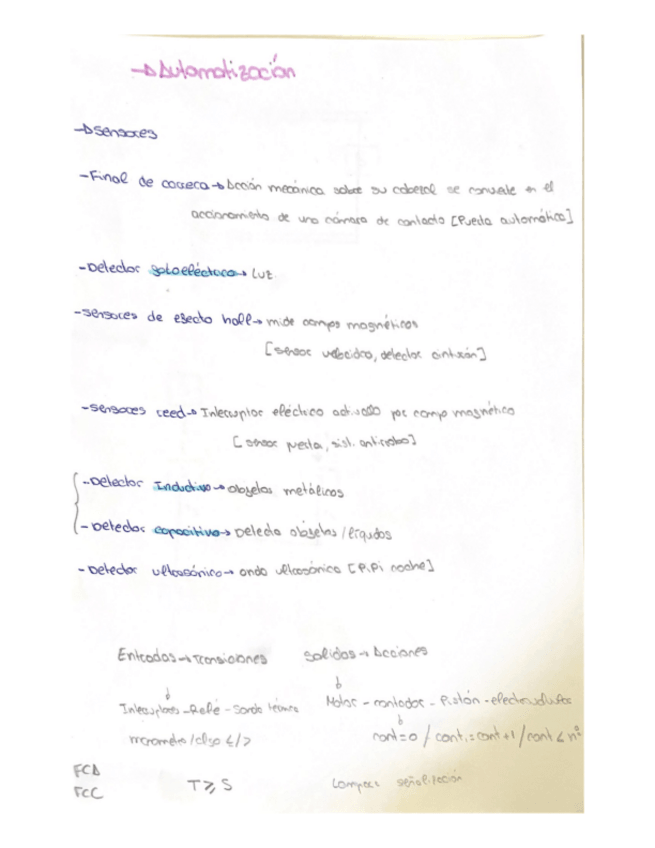 →Automatización
→Sensores
-Final de carrera→Acción mecánica sobre su cabezal se convierte en el
accionamiento de una cámara de contacto [Puerta automática]
-Detector fotoeléctrico→Luz
-sensores de efecto hall→mide campos magnéticos
[sensor velocidad, detector cinturón]
-sensores reed→Interruptor eléctrico activado por campo magnético
[sensor puerta, sist. antirrobo]
-Detector Inductivo→objetos metálicos
-Detector capacitivo→Detecta objetos/líquidos
-Detector ultrasónico→onda ultrasónica [PiPi coche]
Entradas→Transiciones Salidas→Acciones
Interruptores-Relé-Sonda térmica Motor-contador-Pistón-electroválvulas
</> cont=0/cont=cont+1/cont<nº
FCA
FCC T≥S Lámparas señalización